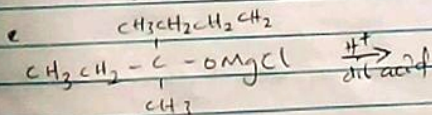 e CH3CH2CH2CH2
CH3CH2 - C - OMgCl H+
dil acid
CH3